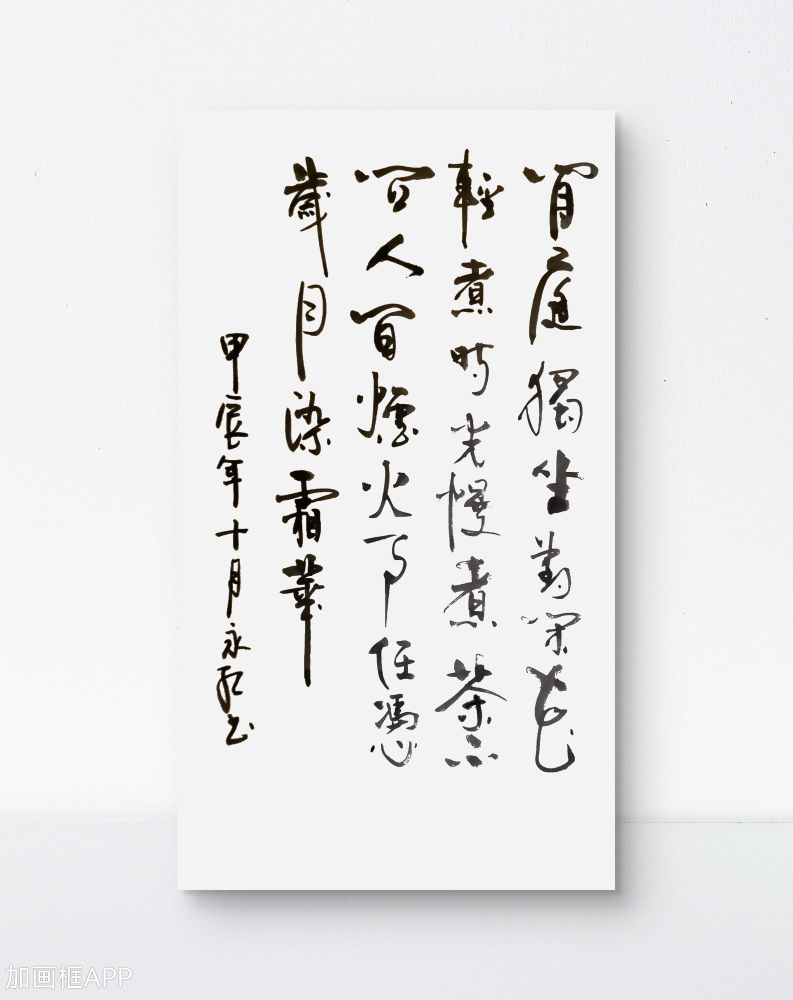 閒庭獨坐對閑花
輕煮時光慢煮茶不
问人間煙火事任憑
歲月染霜華
甲辰年十月永书
加画框APP